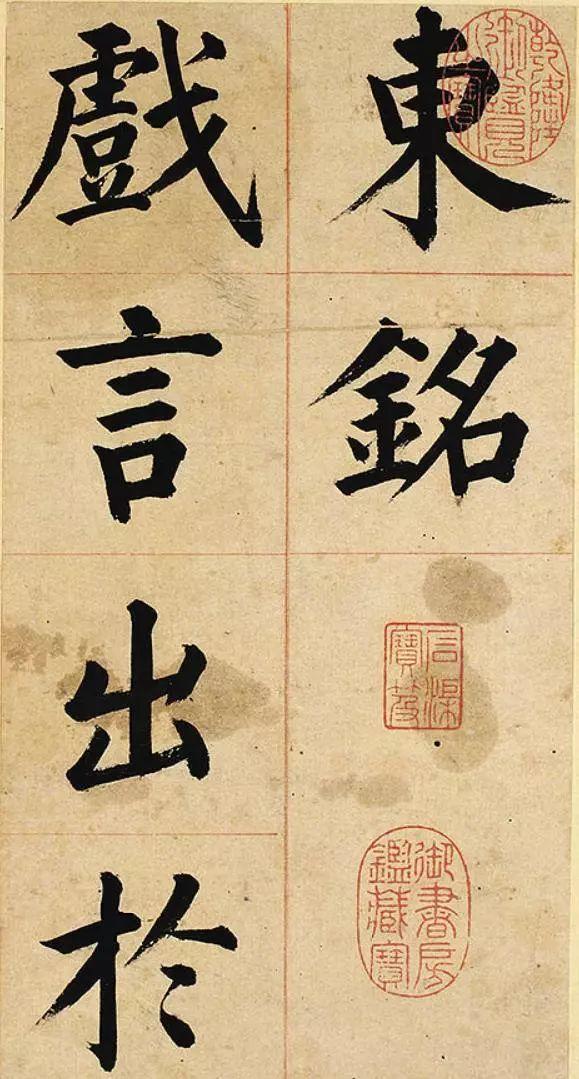 東銘
戲言出於
乾隆御覽之寶
石渠寶笈
御書房鑑藏寶